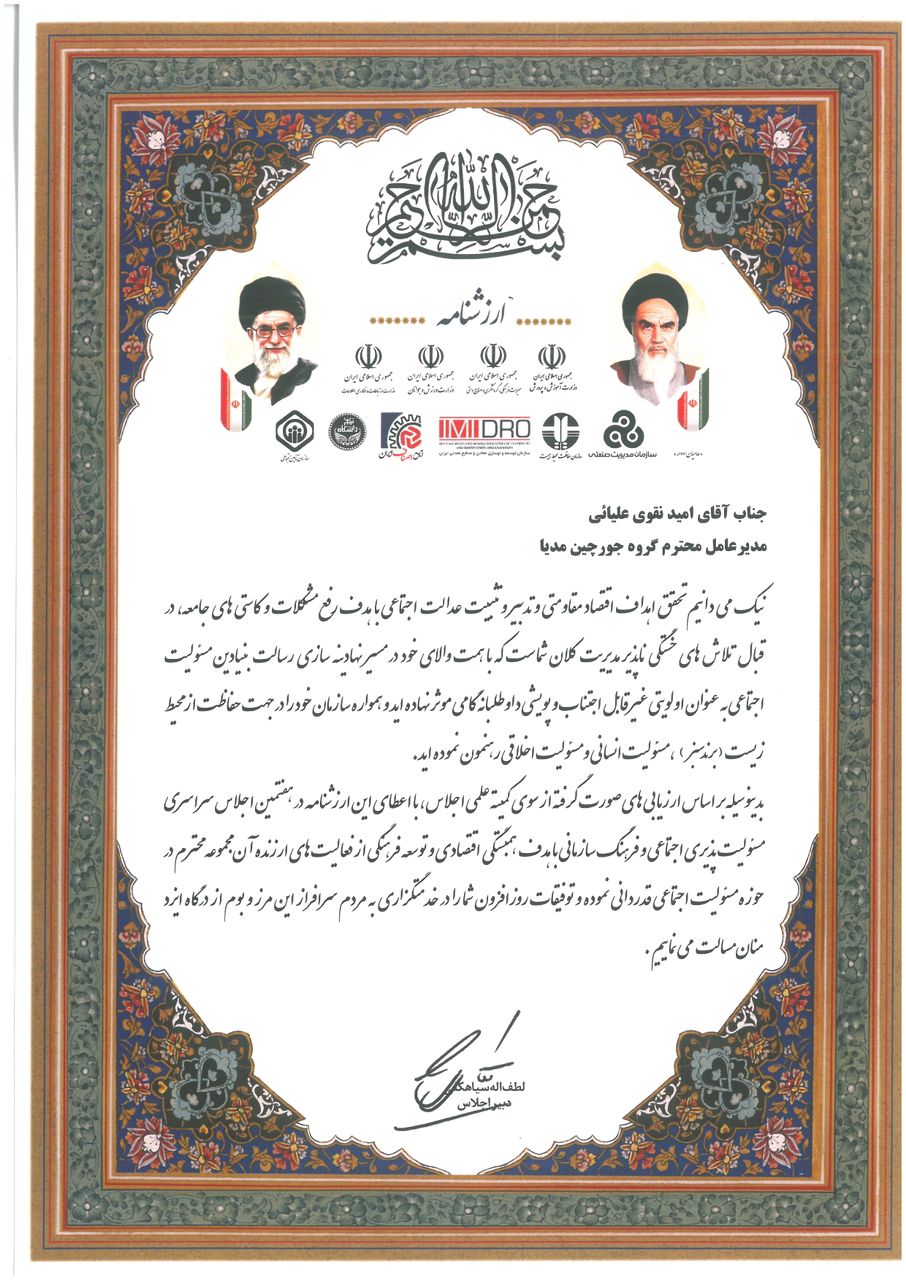 بسم الله الرحمن الرحیم
ارزشنامه
جمهوری اسلامی ایران
وزارت آموزش و پرورش
جمهوری اسلامی ایران
جمهوری اسلامی ایران
وزارت ورزش و جوانان
جمهوری اسلامی ایران
وزارت ارتباطات و فناوری اطلاعات
سازمان مدیریت صنعتی
سازمان حفاظت محیط زیست
IMIDRO
سازمان توسعه و نوسازی معادن و صنایع معدنی ایران
اتاق اصناف ایران
جناب آقای امید نقوی علیائی
مدیرعامل محترم گروه جورچین مدیا
نیک می دانیم تحقق اهداف اقتصاد مقاومتی و تدبیر و تثبیت عدالت اجتماعی با هدف رفع مشکلات و کاستی های جامعه، در
قبال تلاش های خستگی ناپذیر مدیریت کلان شماست که با همت والای خود در مسیر نهادینه سازی رسالت بنیادین مسئولیت
اجتماعی به عنوان اولویتی غیرقابل اجتناب و پویشی داوطلبانه گامی موثر نهاده اید و همواره سازمان خود را در جهت حفاظت از محیط
زیست (برند سبز) ، مسئولیت انسانی و مسئولیت اخلاقی رهنمون نموده اید.
بدینوسیله بر اساس ارزیابی های صورت گرفته از سوی کمیته علمی اجلاس، با اعطای این ارزشنامه در هفتمین اجلاس سراسری
مسئولیت پذیری اجتماعی و فرهنگ سازمانی با هدف همبستگی اقتصادی و توسعه فرهنگی از فعالیت های ارزنده آن مجموعه محترم در
حوزه مسئولیت اجتماعی قدردانی نموده و توفیقات روز افزون شما را در خدمتگزاری به مردم سرافراز این مرز و بوم از درگاه ایزد
منان مسالت می نماییم .
لطف اله سیاهکلی
دبیر اجلاس